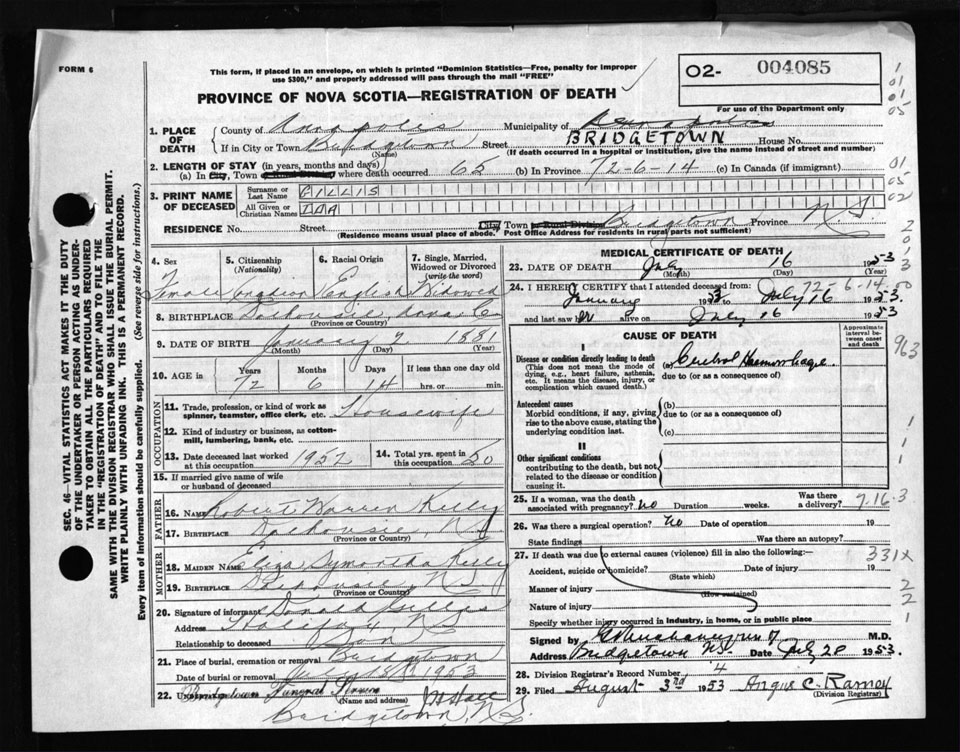 FORM 6
This form, if placed in an envelope, on which is printed "Dominion Statistics—Free, penalty for improper
use $300," and properly addressed will pass through the mail "FREE"
PROVINCE OF NOVA SCOTIA—REGISTRATION OF DEATH
02- 004085
For use of the Department only
1. PLACE OF DEATH
County of Annapolis Municipality of Annapolis
If in City or Town Bridgetown (Name) Street BRIDGETOWN House No.
(If death occurred in a hospital or institution, give the name instead of street and number)
2. LENGTH OF STAY (in years, months and days)
(a) In City, Town or Rural Division where death occurred 65 (b) In Province 72-6-14 (c) In Canada (if immigrant)
3. PRINT NAME OF DECEASED
Surname or Last Name GILLIS
All Given or Christian Names IDA
RESIDENCE No. Street City Town or Rural Division Bridgetown Province N.S.
(Residence means usual place of abode. Post Office Address for residents in rural parts not sufficient)
4. Sex Female
5. Citizenship (Nationality) Canadian
6. Racial Origin English
7. Single, Married, Widowed or Divorced (write the word) Widowed
8. BIRTHPLACE Dalhousie, (Province or Country)
9. DATE OF BIRTH January 2 1881
(Month) (Day) (Year)
10. AGE in Years Months Days If less than one day old
72 6 14 hrs. or min.
OCCUPATION
11. Trade, profession, or kind of work as spinner, teamster, office clerk, etc. Housewife
12. Kind of industry or business, as cotton-mill, lumbering, bank, etc.
13. Date deceased last worked at this occupation 1952
14. Total yrs. spent in this occupation 50
15. If married give name of wife or husband of deceased
FATHER
16. NAME Robert Warren Kelly
17. BIRTHPLACE Dalhousie, N.S.
(Province or Country)
MOTHER
18. MAIDEN NAME Eliza Kelly
19. BIRTHPLACE N.S.
(Province or Country)
20. Signature of informant Donald Gillis
Address Halifax N.S.
Relationship to deceased Son
21. Place of burial, cremation or removal Bridgetown
Date of burial or removal July 18, 1953
22. Undertaker Bridgetown Funeral Service
(Name and address)
Bridgetown, N.S.
MEDICAL CERTIFICATE OF DEATH
23. DATE OF DEATH July 16 1953
(Month) (Day) (Year)
72-6-14
24. I HEREBY CERTIFY that I attended deceased from:
January 1953 July 16 1953.
and last saw her alive on July 16 1953
CAUSE OF DEATH
Approximate interval between onset and death
I
Disease or condition directly leading to death
(This does not mean the mode of dying, e.g., heart failure, asthenia, etc. It means the disease, injury, or complication which caused death.)
(a) Cerebral Haemorrhage
due to (or as a consequence of)
Antecedent causes
Morbid conditions, if any, giving rise to the above cause, stating the underlying condition last.
(b)
due to (or as a consequence of)
(c)
II
Other significant conditions
contributing to the death, but not related to the disease or condition causing it.
25. If a woman, was the death associated with pregnancy? no Duration weeks. Was there a delivery?
7.16.3
26. Was there a surgical operation? no Date of operation 19
State findings Was there an autopsy?
27. If death was due to external causes (violence) fill in also the following:—
331x
Accident, suicide or homicide? Date of injury 19
(State which)
Manner of injury
(How sustained)
Nature of injury
Specify whether injury occurred in industry, in home, or in public place
Signed by M.D.
Address Bridgetown N.S. Date July 20 1953.
28. Division Registrar's Record Number 4
29. Filed August 3rd 1953 Angus C. Ramey
(Division Registrar)
SEC. 46—VITAL STATISTICS ACT MAKES IT THE DUTY
OF THE UNDERTAKER OR PERSON ACTING AS UNDER-
TAKER TO OBTAIN ALL THE PARTICULARS REQUIRED
IN THE "REGISTRATION OF DEATH" AND TO FILE THE
SAME WITH THE DIVISION REGISTRAR WHO SHALL ISSUE THE BURIAL PERMIT.
WRITE PLAINLY WITH UNFADING INK. THIS IS A PERMANENT RECORD.
Every item of information should be carefully supplied. (See reverse side for instructions.)
1
01
01
05
01
05
02
963